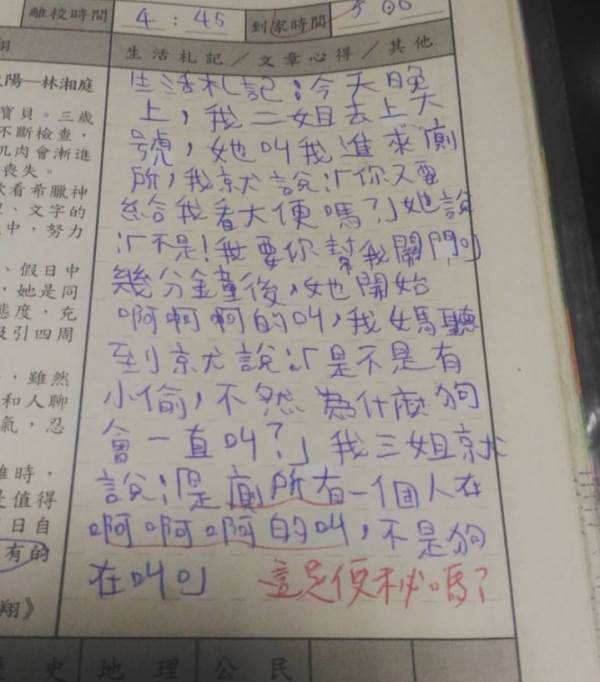 離校時間 4:45 到家時間
生活札記/文章心得/其他
陽—林湘庭
寶貝。三歲
不斷檢查,
肌肉會漸進
喪失。
看希臘神
、文字的
中,努力
、假日中
,她是同
態度,充
吸引四周
,雖然
和人聊
氣,忍
難時,
是值得
日自
有的
翔》
生活札記:今天晚
上,我二姐去上大
號,她叫我進來廁
所,我就說:「你又要
給我看大便嗎?」她說
:「不是!我要你幫我關門」
幾分鐘後,她開始
啊啊啊的叫,我媽聽
到就說:「是不是有
小偷,不然為什麼狗
會一直叫?」我三姐就
說:「是廁所有一個人在
啊啊啊的叫,不是狗
在叫」 這是便秘嗎?
史 地理 公民